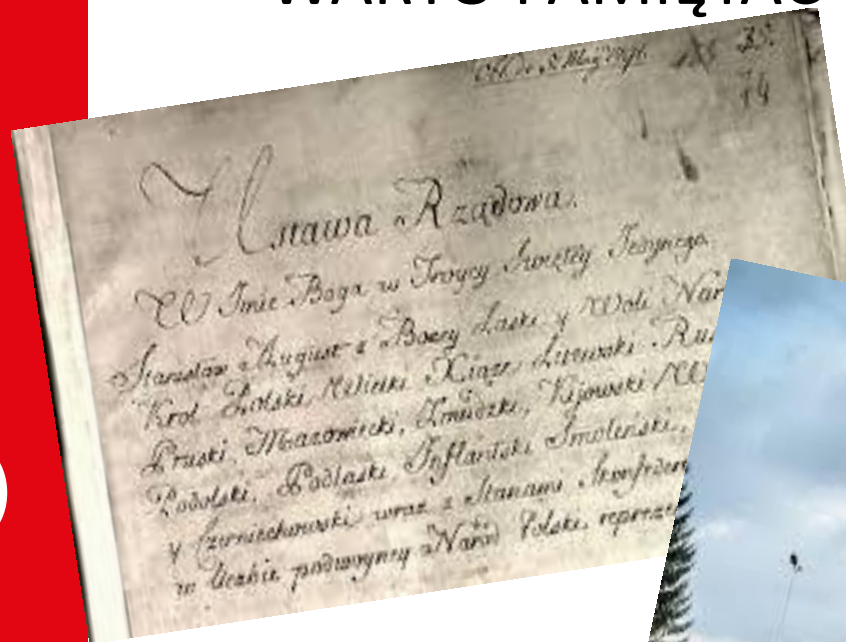 WARTO PAMIĘTAĆ
35.
74
Ustawa Rządowa.
W Imie Boga w Troycy Swiętey Jedynego.
Stanisław August z Bozey Łaski y Woli Nar
Krol Polski Wielki Xiąże Litewski Rus
Pruski, Mazowiecki, Zmudzki, Kijowski W
Podolski, Podlaski Inflantski Smolenski,
y Czerniechowski wraz z Stanami Skonfeder
w liczbie podwoyney Narod Polski repreze